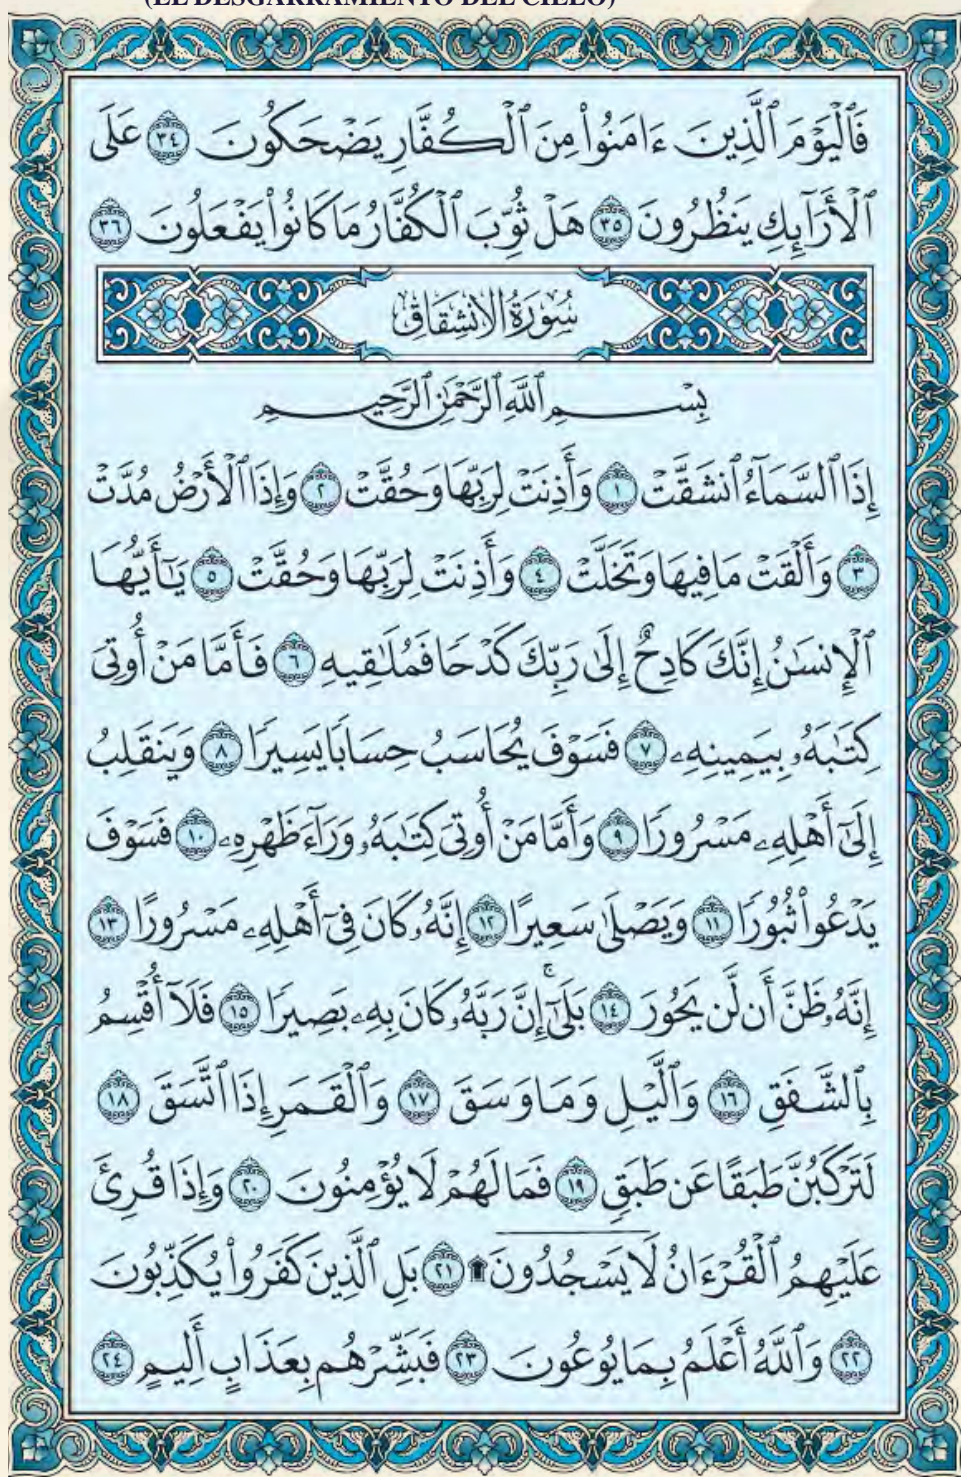 (EL DESGARRAMIENTO DEL CIELO)
فَٱلْيَوْمَ ٱلَّذِينَ ءَامَنُوا۟ مِنَ ٱلْكُفَّارِ يَضْحَكُونَ ٣٤ عَلَى
ٱلْأَرَآئِكِ يَنظُرُونَ ٣٥ هَلْ ثُوِّبَ ٱلْكُفَّارُ مَا كَانُوا۟ يَفْعَلُونَ ٣٦
سُورَةُ الِانشِقَاقِ
بِسْمِ ٱللَّهِ ٱلرَّحْمَٰنِ ٱلرَّحِيمِ
إِذَا ٱلسَّمَآءُ ٱنشَقَّتْ ١ وَأَذِنَتْ لِرَبِّهَا وَحُقَّتْ ٢ وَإِذَا ٱلْأَرْضُ مُدَّتْ
٣ وَأَلْقَتْ مَا فِيهَا وَتَخَلَّتْ ٤ وَأَذِنَتْ لِرَبِّهَا وَحُقَّتْ ٥ يَٰٓأَيُّهَا
ٱلْإِنسَٰنُ إِنَّكَ كَادِحٌ إِلَىٰ رَبِّكَ كَدْحًا فَمُلَٰقِيهِ ٦ فَأَمَّا مَنْ أُوتِىَ
كِتَٰبَهُۥ بِيَمِينِهِۦ ٧ فَسَوْفَ يُحَاسَبُ حِسَابًا يَسِيرًا ٨ وَيَنقَلِبُ
إِلَىٰٓ أَهْلِهِۦ مَسْرُورًا ٩ وَأَمَّا مَنْ أُوتِىَ كِتَٰبَهُۥ وَرَآءَ ظَهْرِهِۦ ١٠ فَسَوْفَ
يَدْعُوا۟ ثُبُورًا ١١ وَيَصْلَىٰ سَعِيرًا ١٢ إِنَّهُۥ كَانَ فِىٓ أَهْلِهِۦ مَسْرُورًا ١٣
إِنَّهُۥ ظَنَّ أَن لَّن يَحُورَ ١٤ بَلَىٰٓۚ إِنَّ رَبَّهُۥ كَانَ بِهِۦ بَصِيرًا ١٥ فَلَآ أُقْسِمُ
بِٱلشَّفَقِ ١٦ وَٱلَّيْلِ وَمَا وَسَقَ ١٧ وَٱلْقَمَرِ إِذَا ٱتَّسَقَ ١٨
لَتَرْكَبُنَّ طَبَقًا عَن طَبَقٍ ١٩ فَمَا لَهُمْ لَا يُؤْمِنُونَ ٢٠ وَإِذَا قُرِئَ
عَلَيْهِمُ ٱلْقُرْءَانُ لَا يَسْجُدُونَ ۩ ٢١ بَلِ ٱلَّذِينَ كَفَرُوا۟ يُكَذِّبُونَ
٢٢ وَٱللَّهُ أَعْلَمُ بِمَا يُوعُونَ ٢٣ فَبَشِّرْهُم بِعَذَابٍ أَلِيمٍ ٢٤